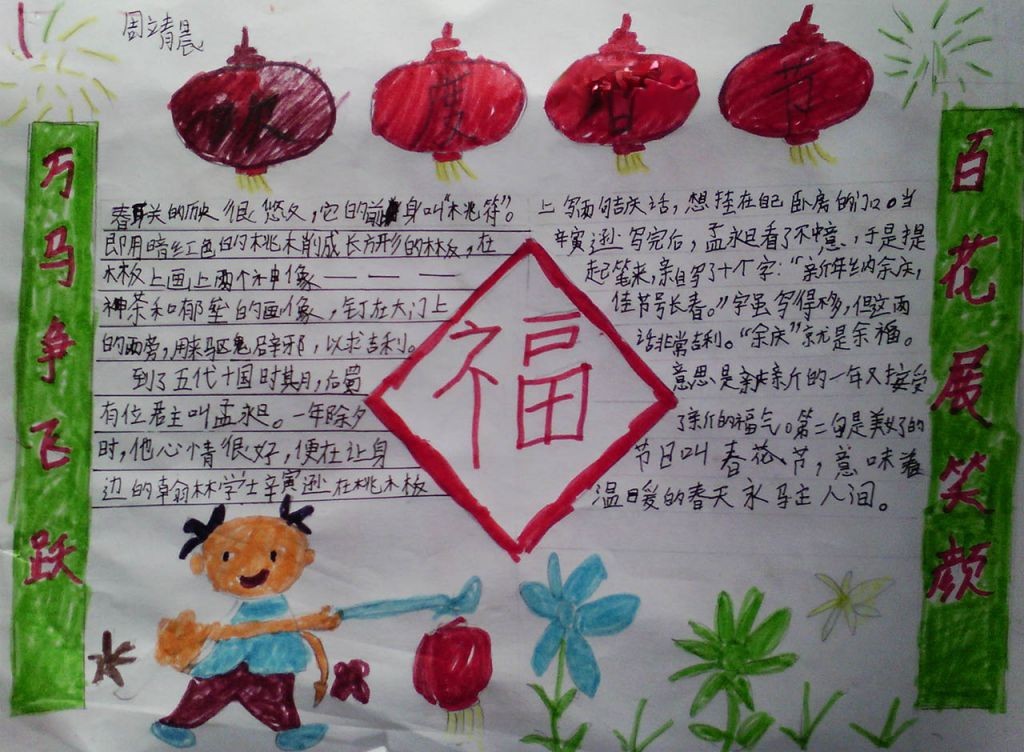 周靖晨
欢度春节
万马争飞跃
百花展笑颜
春联的历史很悠久,它的前身叫“桃符”。
即用暗红色的桃木削成长方形的木板,在
木板上画上两个神像———
神荼和郁垒的画像,钉在大门上
的两旁,用来驱鬼辟邪,以求吉利。
到了五代十国时期,后蜀
有位君主叫孟永旦。一年除夕
时,他心情很好,便在让身
边的翰林学士辛寅逊在桃木板
上写两句吉庆话,想挂在自己卧房的门口。当
辛寅逊写完后,孟永旦看了不中意,于是提
起笔来,亲自写了十个字:“新年纳余庆,
佳节号长春。”字虽写得不多,但这两
话非常吉利。“余庆”就是余福。
意思是新的一年又
了新的福气。第二句是美好的
节日叫春花节,意味着
温暖的春天永驻人间。
福